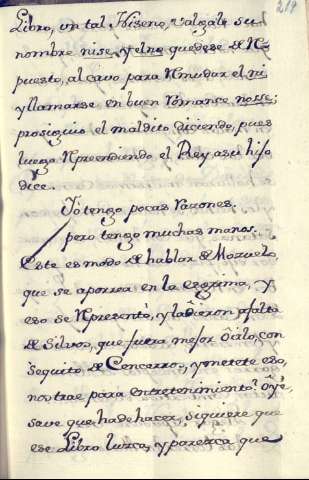 219
Libro, un tal Niseno, valigale su
nombre nise, y el no quedese de R
puesto, al cavo para Rmudar el ni
y llamarse en buen Romance nosse;
prosiguio el maldito diciendo, pues
luego Rprendiendo el Rey asu hijo
dice.
Yo tengo pocas razones.
pero tengo muchas manos.
Este es modo de hablar de Mozuelo,
que se aporrea en la esgrima, y
eso se Rpresentò, y la dieron
de Silvos, que fuera mejor oirlo, con
sequito de Cencerros, y metote eso,
nos trae para entretenimiento?
save que hade hacer, siquiere que
ese Libro luzca, y parezca que